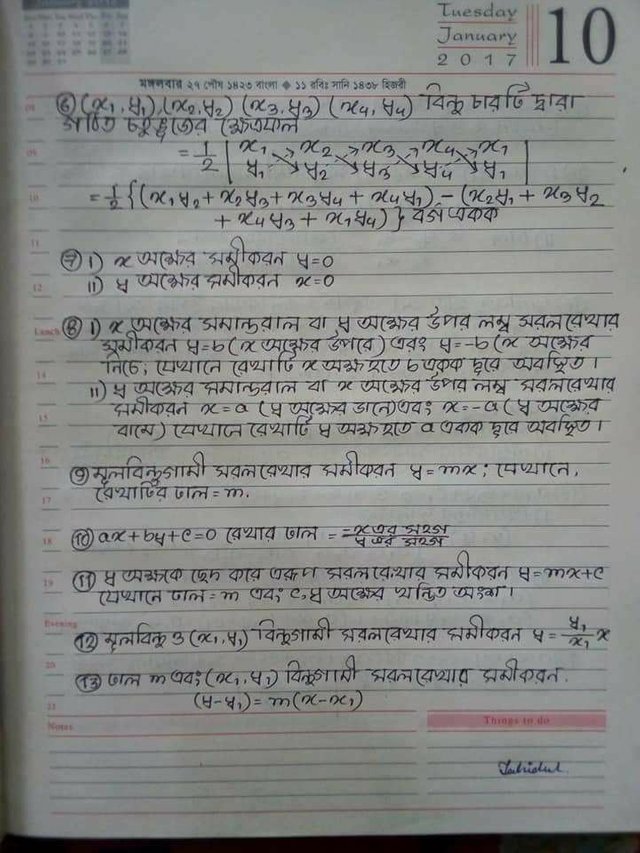 Tuesday
January
2017
10
মঙ্গলবার ২৭ পৌষ ১৪২৩ বাংলা ◆ ১১ রবিঃ সানি ১৪৩৮ হিজরী
৬) (x₁, y₁), (x₂, y₂) (x₃, y₃) (x₄, y₄) বিন্দু চারটি দ্বারা
গঠিত চতুর্ভুজের ক্ষেত্রফল
09
= 1/2 | x₁ x₂ x₃ x₄ x₁
y₁ y₂ y₃ y₄ y₁ |
10
= 1/2 {(x₁y₂ + x₂y₃ + x₃y₄ + x₄y₁) - (x₂y₁ + x₃y₂
+ x₄y₃ + x₁y₄)} বর্গ একক
11
৭) i) x অক্ষের সমীকরণ y=0
12
ii) y অক্ষের সমীকরণ x=0
Lunch
৮) i) x অক্ষের সমান্তরাল বা y অক্ষের উপর লম্ব সরলরেখার
সমীকরণ y=b (x অক্ষের উপরে) এবং y=-b (x অক্ষের
নিচে; যেখানে রেখাটি x অক্ষ হতে b একক দূরে অবস্থিত।
14
ii) y অক্ষের সমান্তরাল বা x অক্ষের উপর লম্ব সরলরেখার
15
সমীকরণ x=a (y অক্ষের ডানে) এবং x=-a (y অক্ষের
বামে) যেখানে রেখাটি y অক্ষ হতে a একক দূরে অবস্থিত।
16
৯) মূলবিন্দুগামী সরলরেখার সমীকরণ y=mx; যেখানে,
17
রেখাটির ঢাল=m.
18
১০) ax+by+c=0 রেখার ঢাল = -x এর সহগ / y এর সহগ
19
১১) y অক্ষকে ছেদ করে এরূপ সরলরেখার সমীকরণ y=mx+c
যেখানে ঢাল=m এবং c, y অক্ষের খন্ডিত অংশ।
Evening
১২) মূলবিন্দু ও (x₁, y₁) বিন্দুগামী সরলরেখার সমীকরণ y = y₁/x₁ x
20
১৩) ঢাল m এবং (x₁, y₁) বিন্দুগামী সরলরেখার সমীকরণ.
21
(y-y₁) = m(x-x₁)
Notes
Things to do